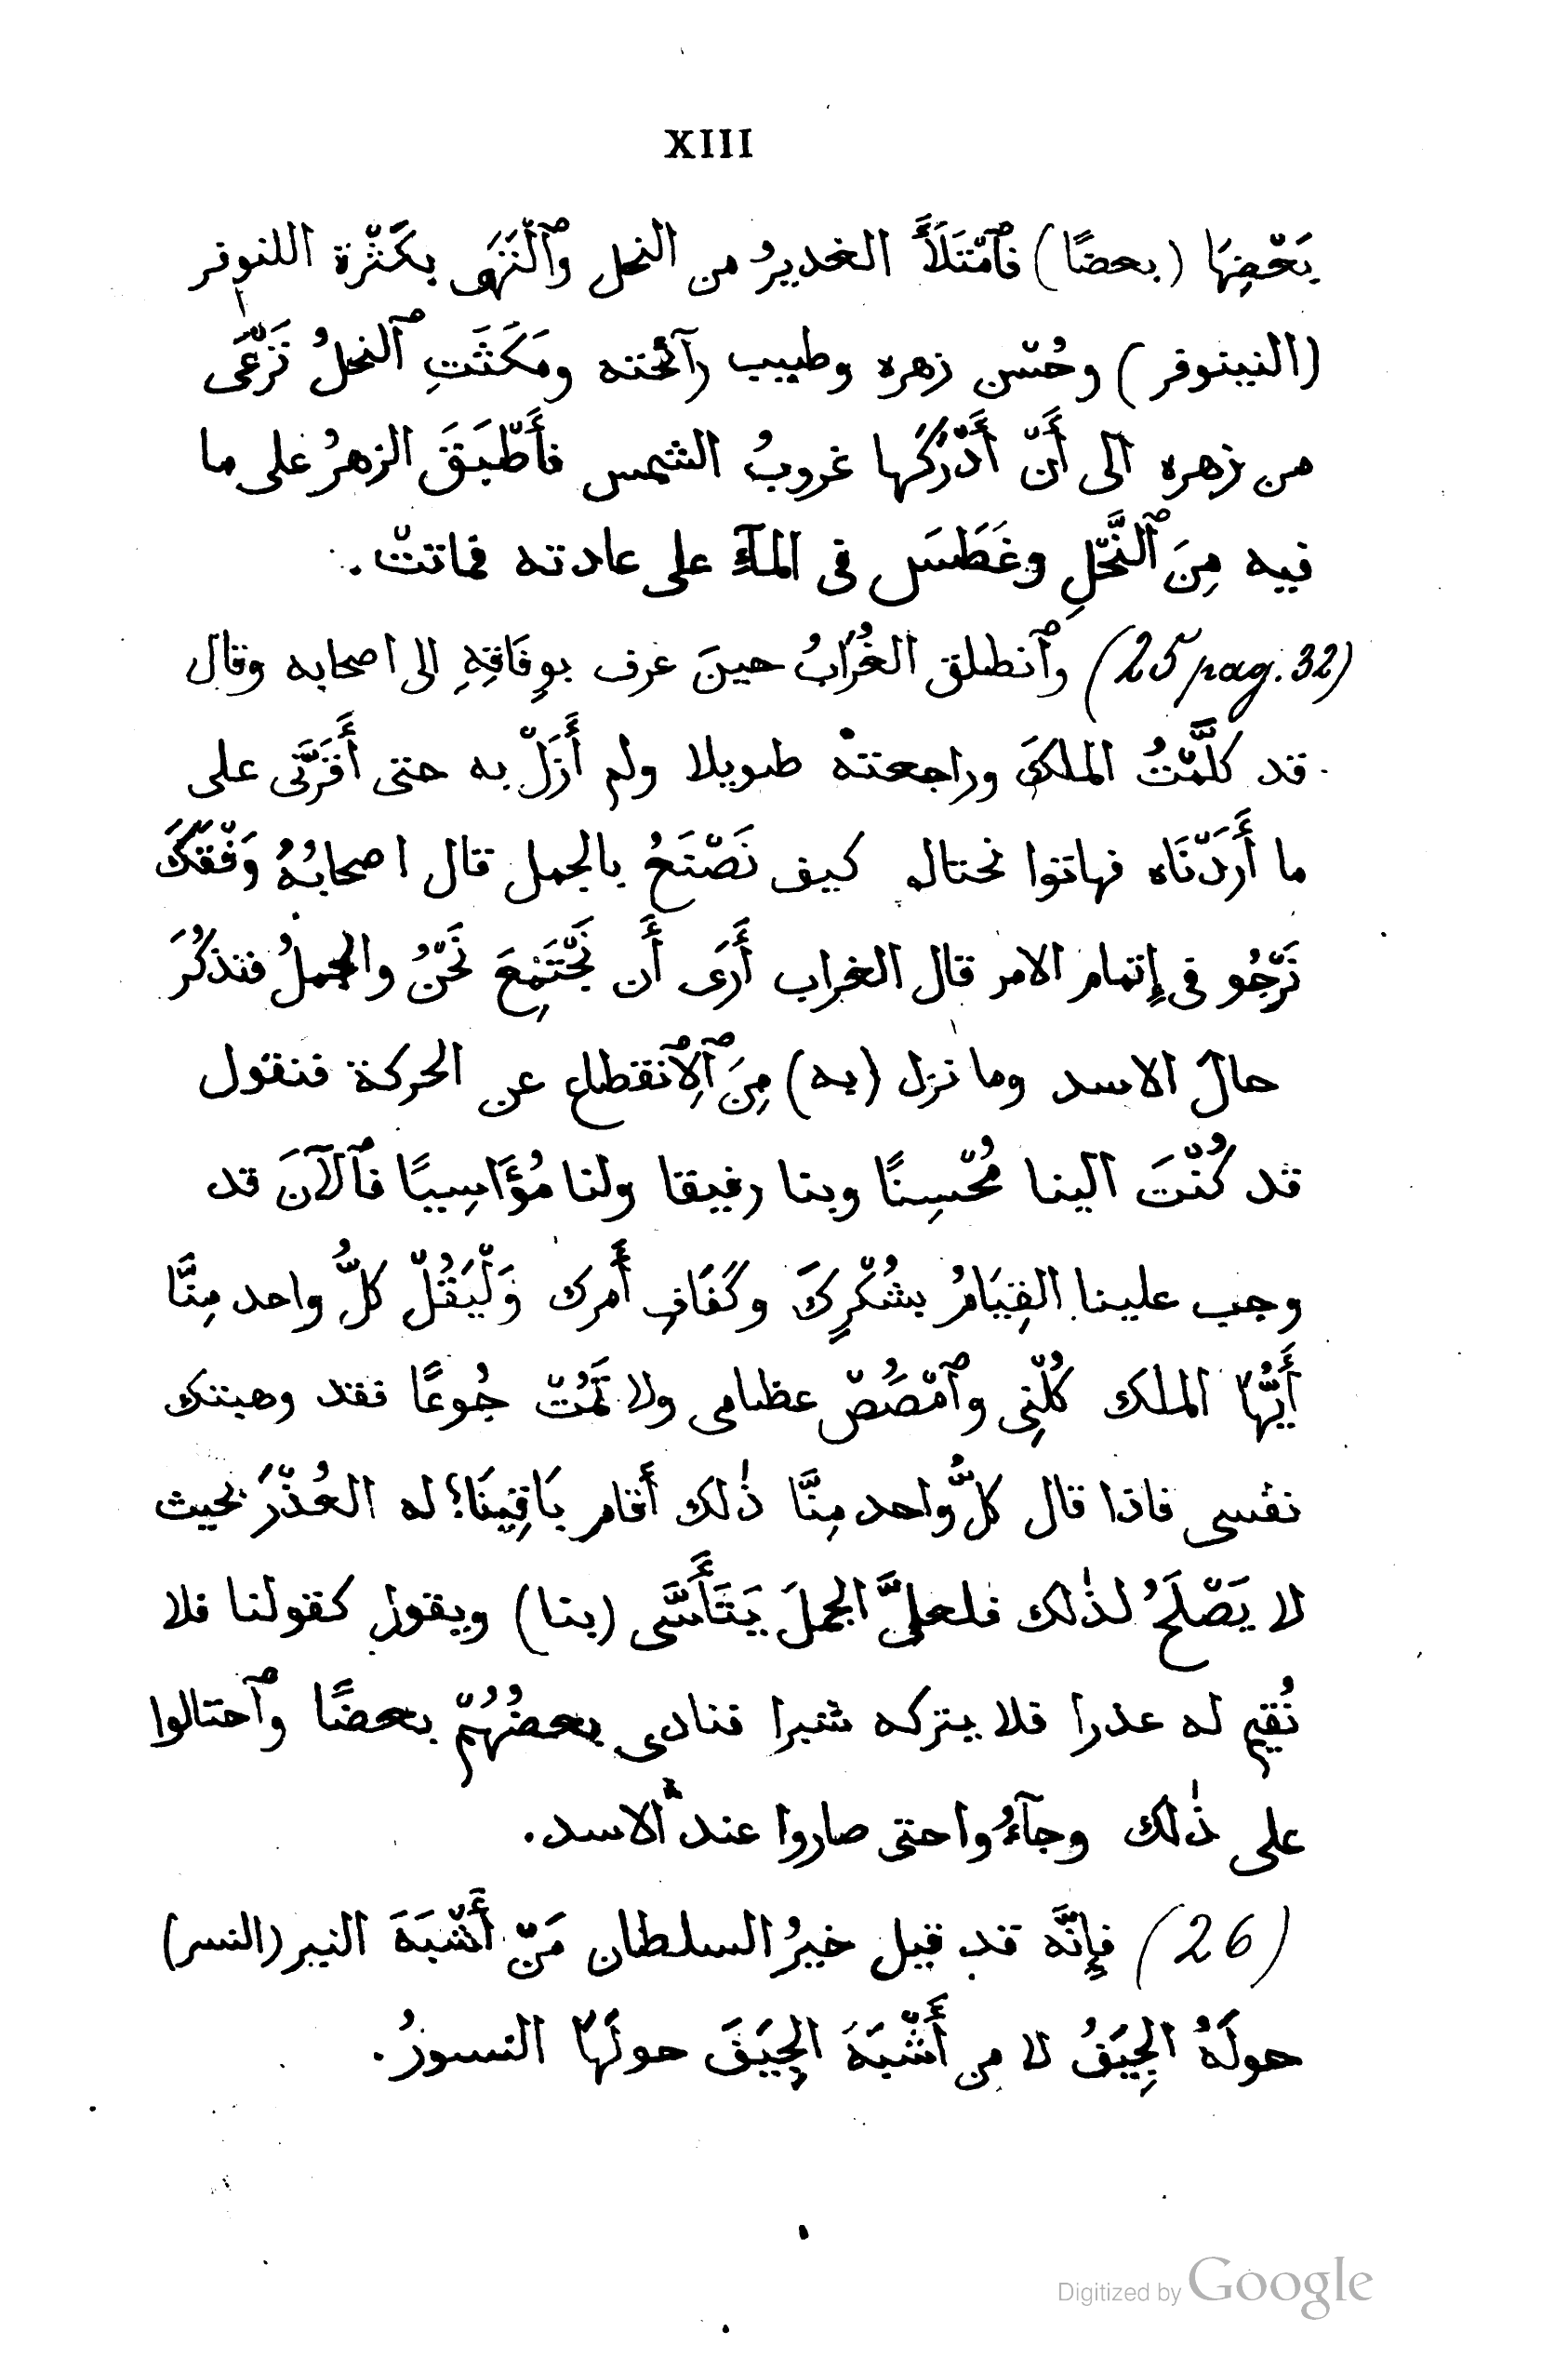 XIII
بَعْضِهَا (بعضًا) فٱمْتَلَأَ الغديرُ من النحل وٱلْتَهَى بكَثْرة اللنوفر
(النينوفر) وحُسْن زهره وطيب رآئحته ومَكَثَتِ ٱلنحلُ تَرْعَى
من زهره الى أَنْ أَدْرَكَها غروبُ الشمس فأَطْبَقَ الزهرُ على ما
فيه مِنَ ٱلنَّحْلِ وغَطَسَ فى المآءِ على عادته فماتتْ.
(25 pag. 32) وٱنطلق الغُرَابُ حينَ عرف بوِفَاقِهِ الى اصحابه وقال
قد كلَّمْتُ الملكَ وراجعته طويلا ولم أَزَلْ به حتى أَقَرَّنى على
ما أَرَدْنَاه فهاتوا نحتال كيف نَصْنَعُ بالجمل قال اصحابُهُ وَفْقَكَ
نَرْجُو فى إتمام الامر قال الغراب أَرَى أَن نَجْتَمِعَ نَحْنُ والجملُ فنذكُرَ
حالَ الاسد وما نزل (به) مِنَ ٱلِٱنقطاع عن الحركة فنقول
قد كُنْتَ الينا مُحْسِنًا وبنا رفيقا ولنا مُؤَاسِيًا فٱلآنَ قد
وجب علينا القِيَامُ بشُكْرِكَ وكَفَافِ أَمرك وَلْيَقُلْ كلُّ واحد مِنَّا
أَيُّهَا الملك كُلْنِى وٱمْصُصْ عظامى ولا تَمُتْ جُوعًا فقد وهبتك
نفسى فاذا قال كلُّ واحد مِنَّا ذٰلك أَقام بَاقِينَا؛ له العُذْرَ بحيث
لا يَصْلَحُ لذٰلك فلعلَّ الجملَ يَتَأَسَّى (بنا) ويقول كقولنا فلا
نُقِيم له عذرا فلا يتركه شترا فنادى بعضُهُمْ بعضًا وٱحتالوا
على ذٰلك وجآءُوا حتى صاروا عند الاسد.
(26) فإنَّه قد قيل خيرُ السلطان مَنْ أَشْبَهَ النير (النسر)
حولَهُ الجِيَفُ لا من أَشْبَهَ الجِيَفَ حولَهَا النسورُ.
Digitized by Google